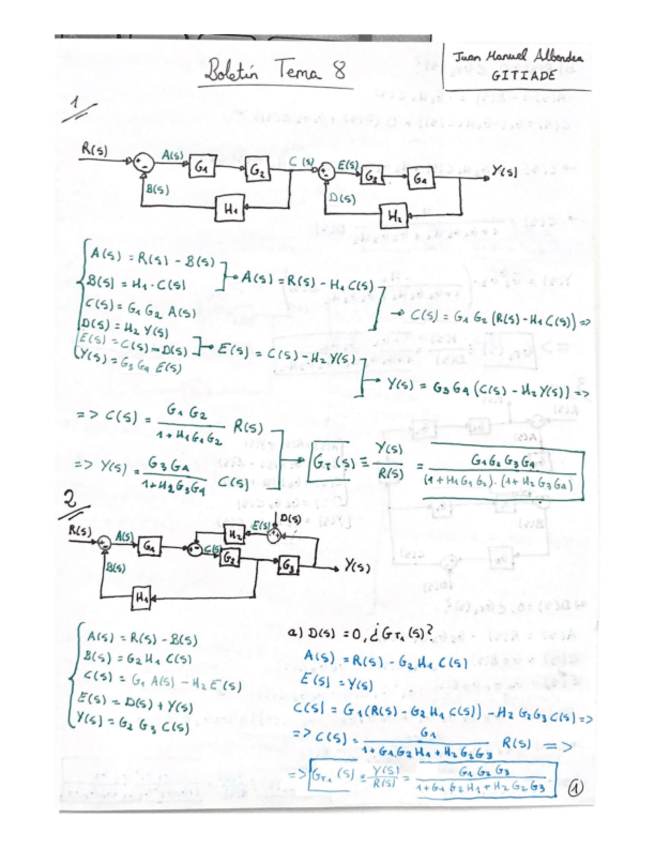 Boletín Tema 8
Juan Manuel Albendea
GITIADE
1
R(s) + - A(s) G1 G2 C(s) + - E(s) G3 G4 Y(s)
B(s) H1 D(s) H2
A(s) = R(s) - B(s)
B(s) = H1 · C(s)
→ A(s) = R(s) - H1 C(s)
C(s) = G1 G2 A(s)
→ C(s) = G1 G2 (R(s) - H1 C(s)) =>
D(s) = H2 Y(s)
E(s) = C(s) - D(s)
→ E(s) = C(s) - H2 Y(s)
Y(s) = G3 G4 E(s)
→ Y(s) = G3 G4 (C(s) - H2 Y(s)) =>
=> C(s) = G1 G2 / 1 + H1 G1 G2 R(s)
=> Y(s) = G3 G4 / 1 + H2 G3 G4 C(s)
GT(s) = Y(s) / R(s) = G1 G2 G3 G4 / (1 + H1 G1 G2) · (1 + H2 G3 G4)
2
D(s)
H2 E(s)
R(s) A(s) G1 C(s) G2 G3 Y(s)
B(s)
H1
A(s) = R(s) - B(s)
B(s) = G2 H1 C(s)
C(s) = G1 A(s) - H2 E(s)
E(s) = D(s) + Y(s)
Y(s) = G2 G3 C(s)
a) D(s) = 0, ¿GT1(s)?
A(s) = R(s) - G2 H1 C(s)
E(s) = Y(s)
C(s) = G1 (R(s) - G2 H1 C(s)) - H2 G2 G3 C(s) =>
=> C(s) = G1 / 1 + G1 G2 H1 + H2 G2 G3 R(s) =>
=> GT1(s) = Y(s) / R(s) = G1 G2 G3 / 1 + G1 G2 H1 + H2 G2 G3
1